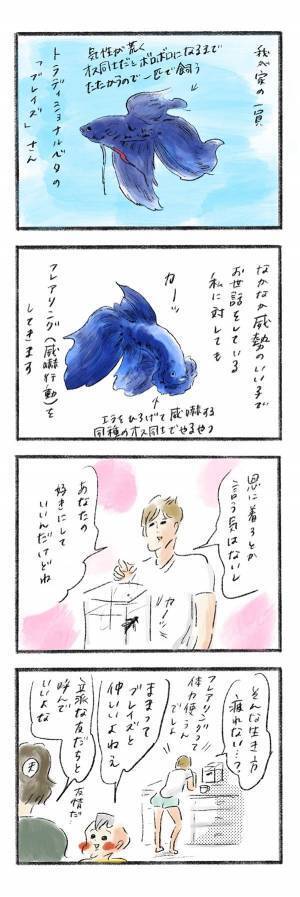 我が家の一員
気性が荒く
オス同士だとボロボロになるまで
たたかうので一匹で飼う
トラディショナルベタの
「ブレイズ」さん
なかなか威勢のいい子で
お世話をしている
私に対しても
かーッ
フレアリング(威嚇行動)を
してきます
エラをひろげて威嚇する
同種のオス同士でやるやつ
恩に着ろとか
言う気はないし
あなたの
好きにして
いいんだけどね
カーッ
そんな生き方
疲れない…?
フレアリングって
体力使うんでしょ
ままって
ブレイズと
仲いいよねえ
立派な友だちと
呼んで
いいよな
友情だ…
夫